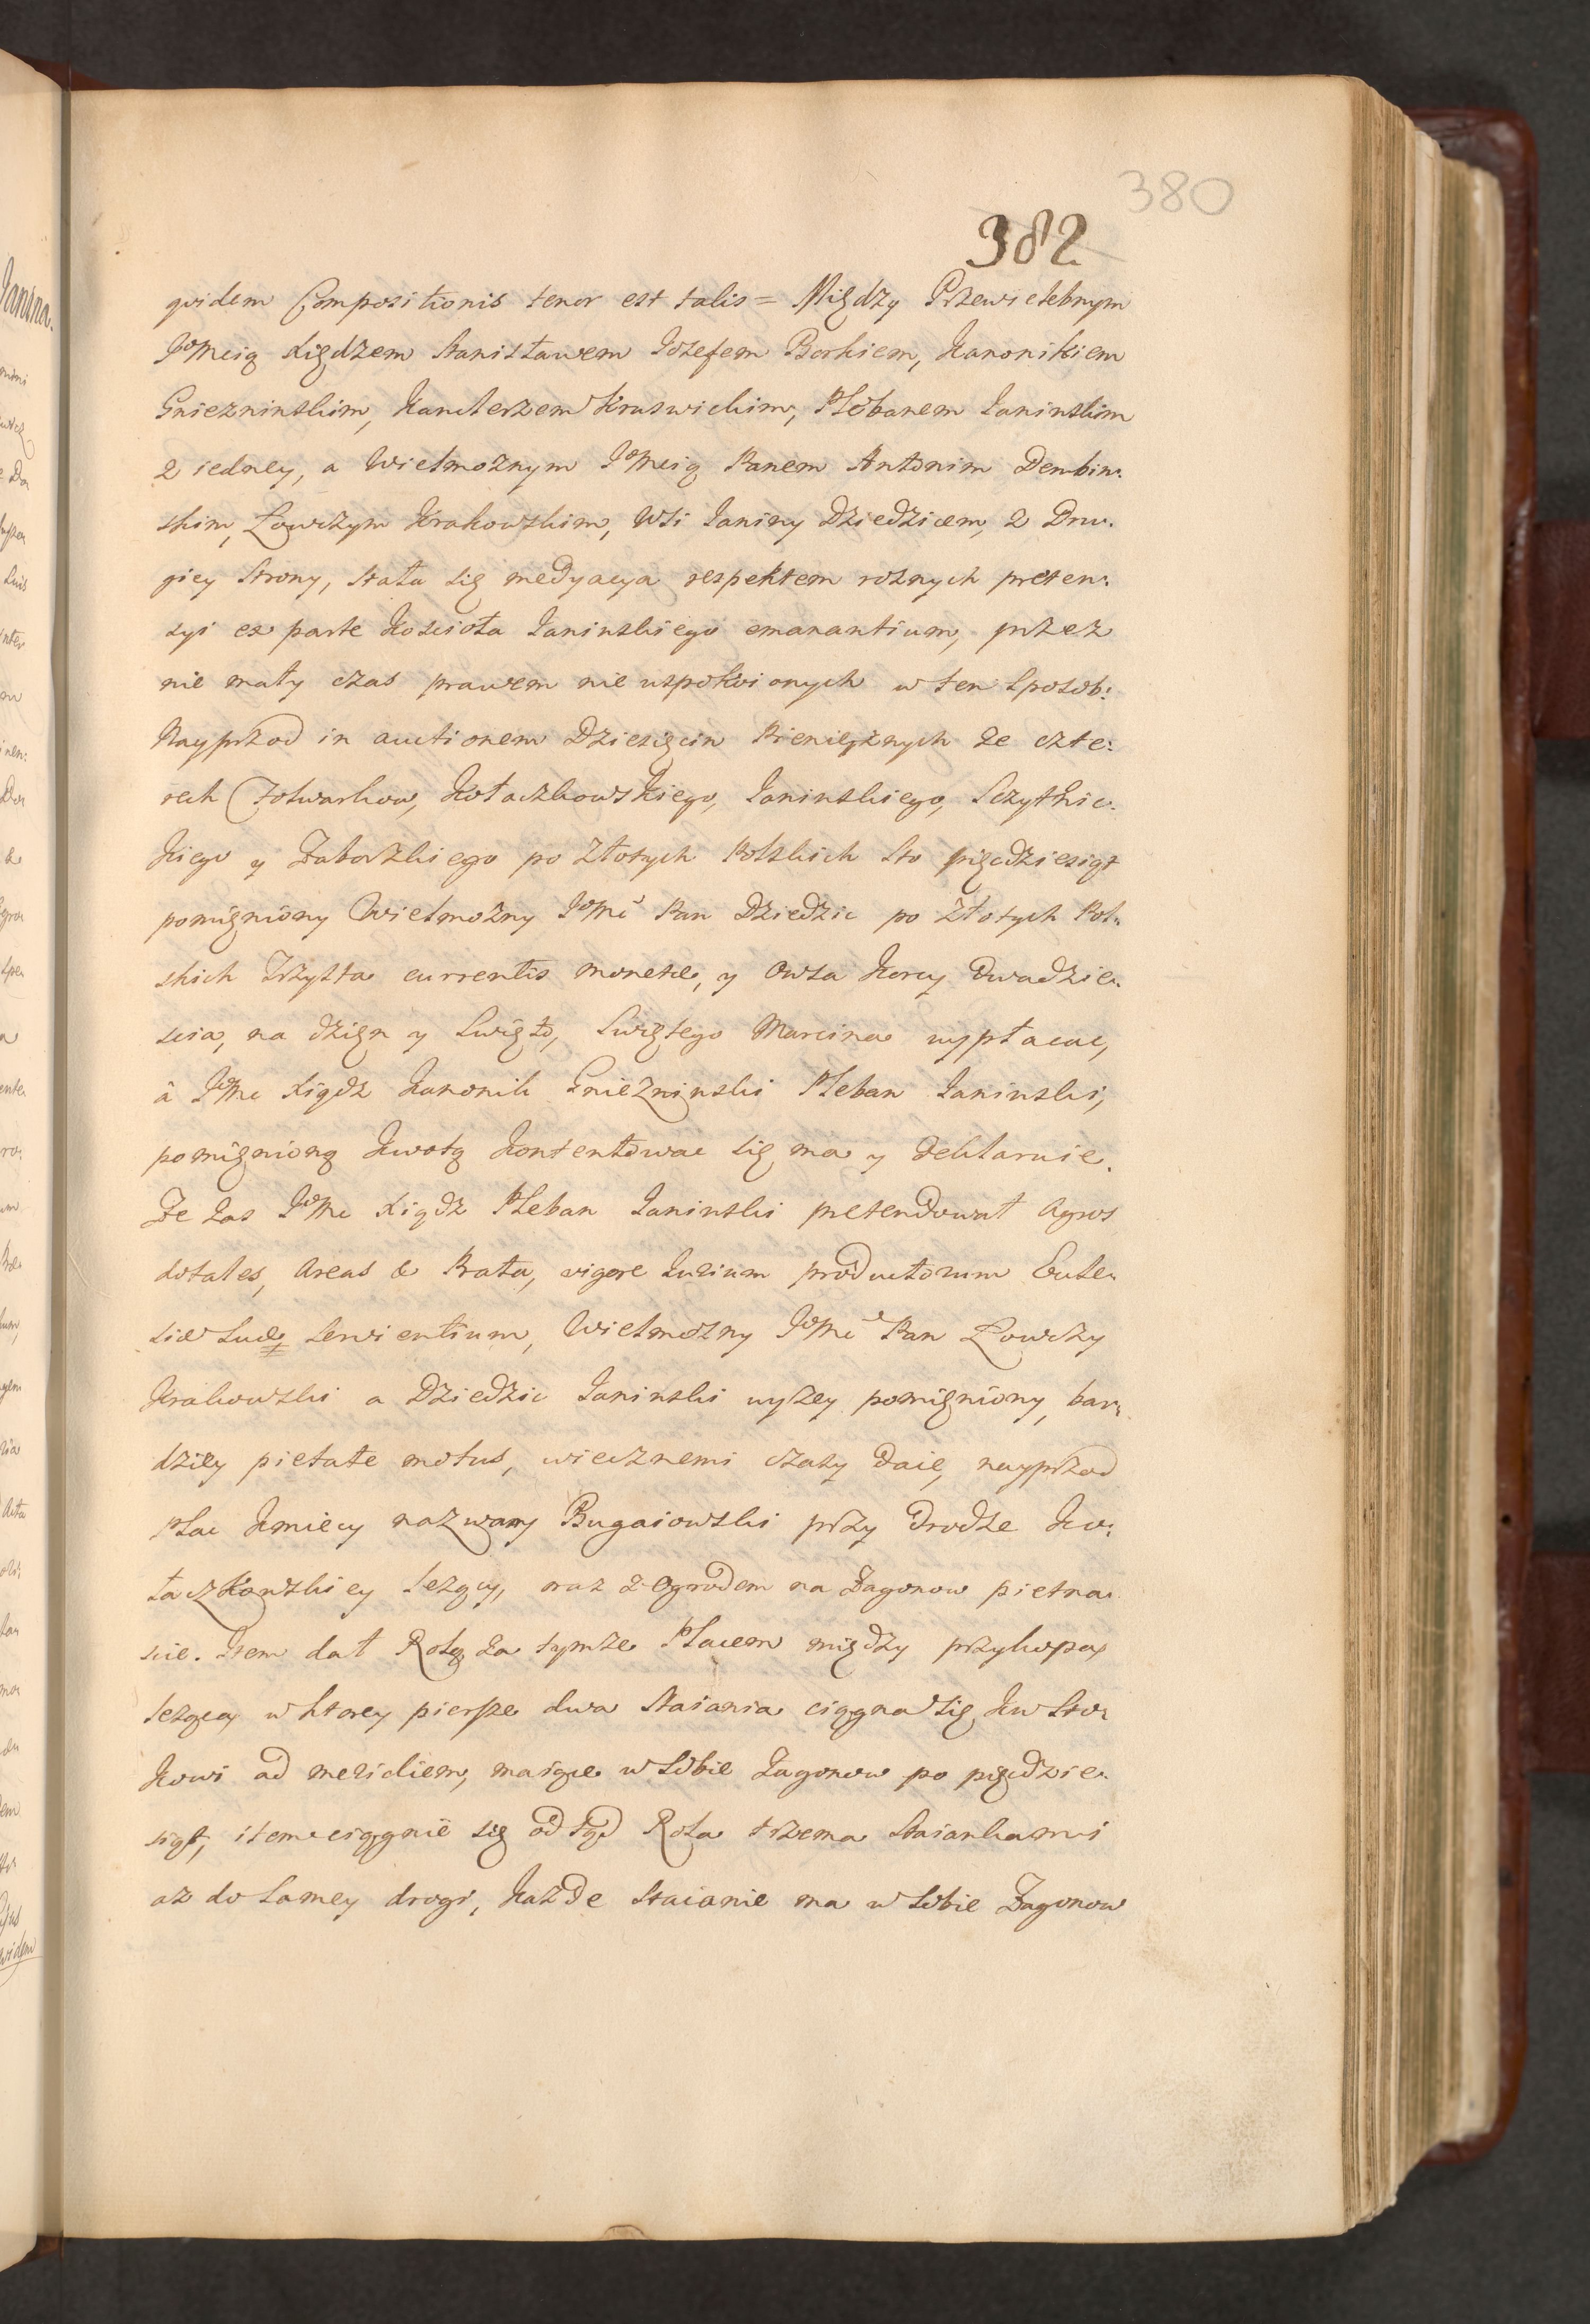 380
382
quidem Compositionis tenor est talis = Między Przewielebnym
JoMcią Xiędzem Stanisławem Jozefem Borkiem, Kanonikiem
Gniezninskim, Kanclerzem Kruswickim, Plebanem Janinskim
z iedney, a Wielmożnym JoMcią Panem Antonim Dembin:
skim, Łowczym Krakowskim, Wsi Janiny Dziedzicem, z Dru:
giey Strony, stała się medyacya respektem rożnych preten:
syi ex parte Koscioła Janinskiego emanantium, przez
nie mały czas prawem nie uspokoionych w ten sposob:
Nayprzod in auctionem Dziesięcin Pieniężnych ze czte:
rech Folwarkow, Kołaczkowskiego, Janinskiego, Szczytnic:
kiego y Zaborskiego po Złotych Polskich Sto pięcdziesiąt
pomięniony Wielmożny JoMć Pan Dziedzic po Złotych Pol:
skich Trzysta currentis monetæ, y Owsa Korcy dwadzie:
scia, na dzięn y Swięto, Swiętego Marcina wypłacac,
à JoMc Xiądz Kanonik Gniezninski Pleban Janinski,
pomięnioną kwotą kontentowac się ma y deklaruie.
Ze zas JoMc Xiądz Pleban Janinski pretendował Agros
dotales, Areas & Prata, vigore Jurium productorum Eccle:
siæ suæ servientium, Wielmożny JoMć Pan Łowczy
Krakowski a Dziedzic Janinski wyżey pomięniony, bar:
dziey pietate motus, wiecznemi czasy daie, nayprzod
Plac Kmiecy nazwany Bugaiowski przy drodze Ko:
łaczkowskiey leżący, oraz z ogrodem na Zagonow pietna:
scie. Item dał Rolą za tymże Placem między przykopą
leżącą w ktorey piersze dwa Staiania ciągną się ku Sto:
kowi ad meridiem, maiące w sobie Zagonow po pięcdzie:
siąt, item ciągnie się od tąd Rola trzema Staiankami
aż do samey drogi, każde Staianie ma w sobie Zagonow